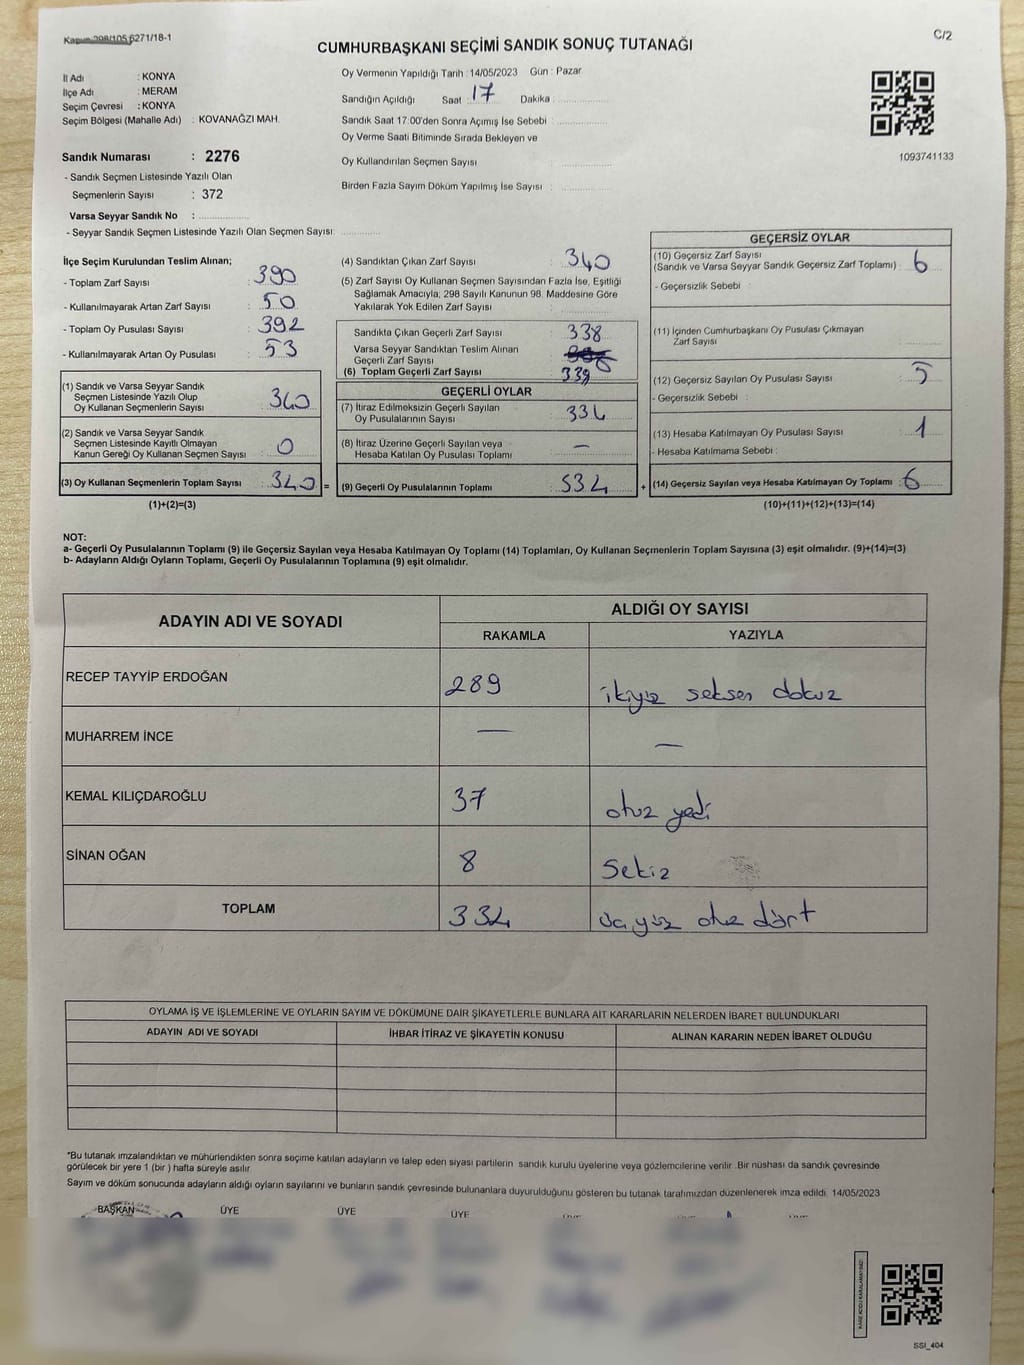 Kanun 298/105,6271/18-1
C/2
CUMHURBAŞKANI SEÇİMİ SANDIK SONUÇ TUTANAĞI
İl Adı : KONYA
İlçe Adı : MERAM
Seçim Çevresi : KONYA
Seçim Bölgesi (Mahalle Adı) : KOVANAĞZI MAH.
Oy Vermenin Yapıldığı Tarih : 14/05/2023 Gün : Pazar
Sandığın Açıldığı Saat : 17 Dakika :
Sandık Saat 17:00'den Sonra Açımış İse Sebebi :
Oy Verme Saati Bitiminde Sırada Bekleyen ve
Oy Kullandırılan Seçmen Sayısı :
Birden Fazla Sayım Döküm Yapılmış İse Sayısı :
1093741133
Sandık Numarası : 2276
- Sandık Seçmen Listesinde Yazılı Olan
Seçmenlerin Sayısı : 372
Varsa Seyyar Sandık No :
- Seyyar Sandık Seçmen Listesinde Yazılı Olan Seçmen Sayısı:
İlçe Seçim Kurulundan Teslim Alınan;
- Toplam Zarf Sayısı : 390
- Kullanılmayarak Artan Zarf Sayısı : 50
- Toplam Oy Pusulası Sayısı : 392
- Kullanılmayarak Artan Oy Pusulası : 53
(1) Sandık ve Varsa Seyyar Sandık
Seçmen Listesinde Yazılı Olup
Oy Kullanan Seçmenlerin Sayısı : 340
(2) Sandık ve Varsa Seyyar Sandık
Seçmen Listesinde Kayıtlı Olmayan
Kanun Gereği Oy Kullanan Seçmen Sayısı : 0
(3) Oy Kullanan Seçmenlerin Toplam Sayısı : 340 =
(1)+(2)=(3)
(4) Sandıktan Çıkan Zarf Sayısı : 340
(5) Zarf Sayısı Oy Kullanan Seçmen Sayısından Fazla İse, Eşitliği
Sağlamak Amacıyla, 298 Sayılı Kanunun 98. Maddesine Göre
Yakılarak Yok Edilen Zarf Sayısı :
Sandıkta Çıkan Geçerli Zarf Sayısı : 338
Varsa Seyyar Sandıktan Teslim Alınan
Geçerli Zarf Sayısı :
(6) Toplam Geçerli Zarf Sayısı : 339
GEÇERLİ OYLAR
(7) İtiraz Edilmeksizin Geçerli Sayılan
Oy Pusulalarının Sayısı : 334
(8) İtiraz Üzerine Geçerli Sayılan veya
Hesaba Katılan Oy Pusulası Toplamı : —
(9) Geçerli Oy Pusulalarının Toplamı : 334 +
GEÇERSİZ OYLAR
(10) Geçersiz Zarf Sayısı
(Sandık ve Varsa Seyyar Sandık Geçersiz Zarf Toplamı) : 6
- Geçersizlik Sebebi :
(11) İçinden Cumhurbaşkanı Oy Pusulası Çıkmayan
Zarf Sayısı :
(12) Geçersiz Sayılan Oy Pusulası Sayısı : 5
- Geçersizlik Sebebi :
(13) Hesaba Katılmayan Oy Pusulası Sayısı : 1
- Hesaba Katılmama Sebebi :
(14) Geçersiz Sayılan veya Hesaba Katılmayan Oy Toplamı : 6
(10)+(11)+(12)+(13)=(14)
NOT:
a- Geçerli Oy Pusulalarının Toplamı (9) ile Geçersiz Sayılan veya Hesaba Katılmayan Oy Toplamı (14) Toplamları, Oy Kullanan Seçmenlerin Toplam Sayısına (3) eşit olmalıdır. (9)+(14)=(3)
b- Adayların Aldığı Oyların Toplamı, Geçerli Oy Pusulalarının Toplamına (9) eşit olmalıdır.
ADAYIN ADI VE SOYADI
ALDIĞI OY SAYISI
RAKAMLA YAZIYLA
RECEP TAYYİP ERDOĞAN 289 ikiyüz seksen dokuz
MUHARREM İNCE — —
KEMAL KILIÇDAROĞLU 37 otuz yedi
SİNAN OĞAN 8 Sekiz
TOPLAM 334 üçyüz otuz dört
OYLAMA İŞ VE İŞLEMLERİNE VE OYLARIN SAYIM VE DÖKÜMÜNE DAİR ŞİKAYETLERLE BUNLARA AİT KARARLARIN NELERDEN İBARET BULUNDUKLARI
ADAYIN ADI VE SOYADI İHBAR İTİRAZ VE ŞİKAYETİN KONUSU ALINAN KARARIN NEDEN İBARET OLDUĞU
*Bu tutanak imzalandıktan ve mühürlendikten sonra seçime katılan adayların ve talep eden siyasi partilerin sandık kurulu üyelerine veya gözlemcilerine verilir. Bir nüshası da sandık çevresinde
görülecek bir yere 1 (bir ) hafta süreyle asılır.
Sayım ve döküm sonucunda adayların aldığı oyların sayılarını ve bunların sandık çevresinde bulunanlara duyurulduğunu gösteren bu tutanak tarafımızdan düzenlenerek imza edildi. 14/05/2023
BAŞKAN ÜYE ÜYE ÜYE
KARE KODU KARALAMAYINIZ!
SSI_404